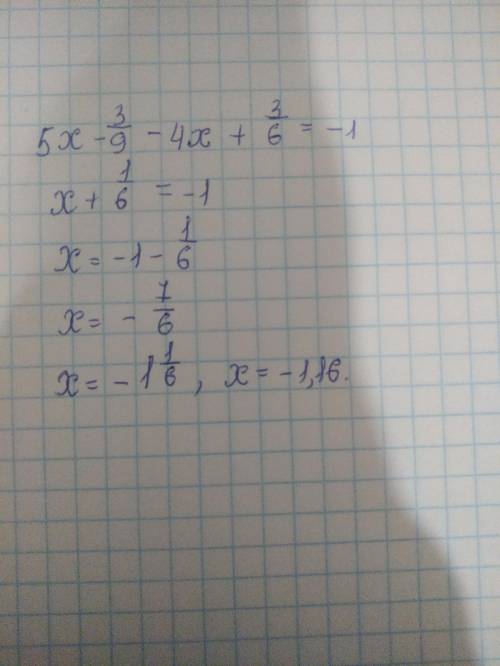 5x - 3/9 - 4x + 3/6 = -1
x + 1/6 = -1
x = -1 - 1/6
x = - 7/6
x = - 1 1/6 , x = -1,16.